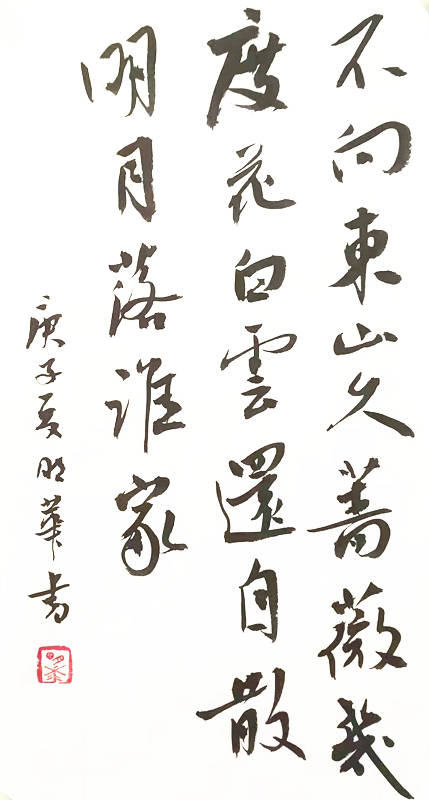 不向東山久薔薇幾
度花白雲還自散
明月落誰家
庚子夏明華书